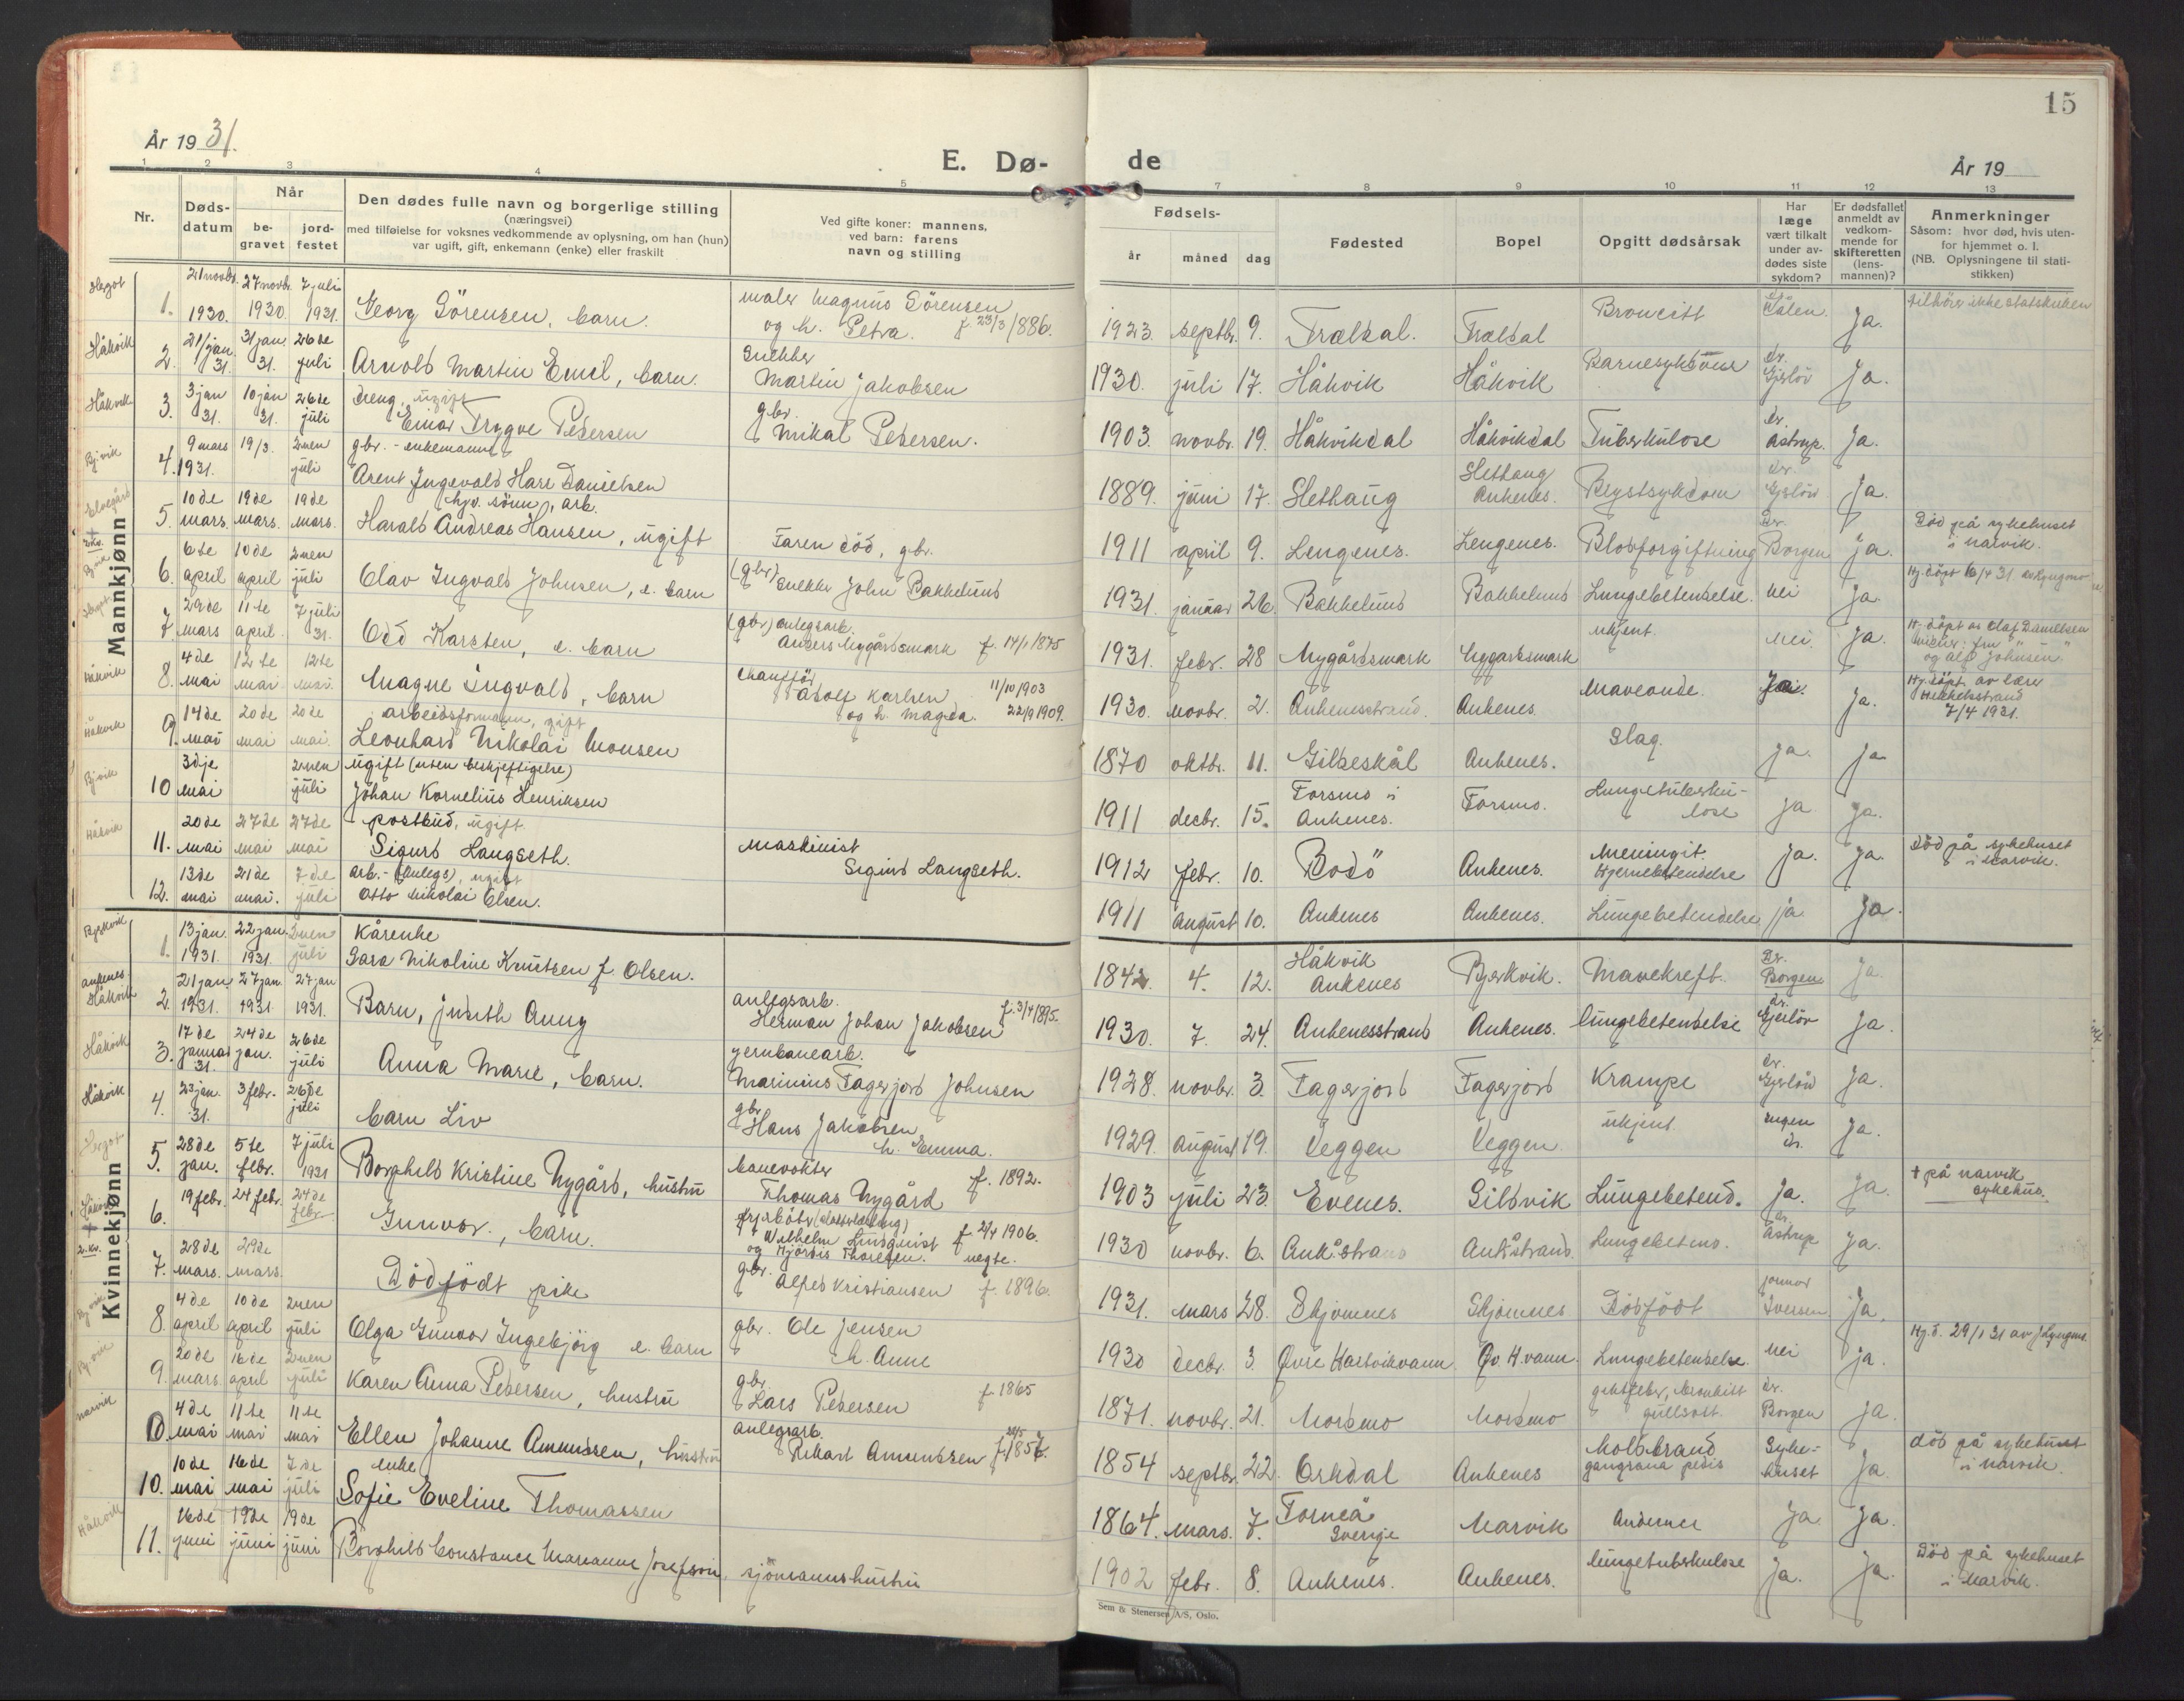 År 1931.
E. Dø-
1 2 3 4 5
Nr.
Døds-
datum
Når
be-
gravet
jord-
festet
Den dødes fulle navn og borgerlige stilling
(næringsvei)
med tilføielse for voksnes vedkommende av oplysning, om han (hun)
var ugift, gift, enkemann (enke) eller fraskilt
Ved gifte koner: mannens,
ved barn: farens
navn og stilling
Mannkjønn
1. 21 novbr. 1930. 27 novbr. 1930. 7 juli 1931. Georg Sörensen, barn. maler Magnus Sörensen
og h. Petra. f. 23/3 1886.
Håkvik 2. 21/jan. 31. 31 jan. 31. 26de juli Arnold Martin Emil, barn. Snekker
Martin Jakobsen
Håkvik 3. 3 jan 31. 10 jan 31. 26de juli dreng, ugift
Einar Trygve Pedersen gbr.
Mikal Pedersen.
Bjvik 4. 9 mars 1931. 19/3. 2nen juli gbr. - enkemann
Arent Ingevald Hare Danielsen
5. 10de mars. 19de mars. 19de mars. hjv. sönn, arb.
Harald Andreas Hansen, ugift Faren död, gbr.
6. 6te april 10de april 2nen juli Olav Ingvald Johnsen, e. barn (gbr) Snekker John Bakkelund
7. 29de mars 11te april. 7 juli 31. Odd Karsten, e. barn (gbr) anlegsarb.
Anders Nygårdsmark f. 14/1 1875
Håkvik 8. 4de mai 12te mai 12te mai. Magne Ingvald, barn Chaufför
Adolf Karlsen 11/10 1903
og h. Magda. 22/9 1909.
Håkvik 9. 14de mai 20de mai 20de mai. arbeidsformann, gift
Leonhard Nikolai Monsen
Bjvik 10 3dje mai 2nen juli ugift (uten beskjeftigelse)
Johan Kornelius Henriksen
Håkvik 11. 20de mai 27de mai 27de mai postbud, ugift.
Sigurd Langseth. maskinist
Sigurd Langseth.
12. 13de mai 21de mai. 7de juli arb. - (anlegs), ugift
Otto Nikolai Elsen.
Kvinnekjønn
Bjerkvik 1. 13 jan. 1931. 22 jan. 1931. 2nen juli Kårenke
Sara Nikoline Knutsen f. Olsen.
Ankenes Håkvik 2. 21 jan. 1931. 27 jan. 1931. 27 jan 1931. Barn, Judith Anny anlegsarb.
Herman Johan Jakobsen f. 3/4 1895.
Håkvik 3. 17de januar 31. 24de jan. 26de juli Anna Marie, barn. jernbanearb.
Marinius Fagerjord Johnsen
Håkvik 4. 23 jan. 31. 3 febr. 26de juli barn Liv gbr.
Hans Jakobsen
h. Emma.
5. 28de jan. 5te febr. 7 juli 1931 Borghild Kristine Nygård, hustru banevokter
Thomas Nygård f. 1892.
6. 19 febr. 24 febr. 24de febr. Gunvor, barn. Wilhelm Lindquist f. 1906.
og Hjördis Thoresen. uegte.
7. 28de mars. 29de mars. Dödfödt pike gbr.
Alfred Kristiansen f. 1896.
8. 4de april 10de april 2nen juli Olga Gunvor Ingebjörg e. barn gbr. Ole Jensen
h. Anne
9. 20de mars. 16de april 2nen juli Karen Anna Pedersen, hustru gbr.
Lars Pedersen f. 1865
Narvik 4de mai 11te mai 11te mai Ellen Johanne Amundsen, hustru anlegsarb.
Rikard Amundsen
10. 10de mai 16de mai 7de juli enke
Sofie Eveline Thomassen
Håkvik 11. 16de juni 19de juni 19de juni Borghild Constance Marianne Josefson, sjömannshustru
15
de
År 19
7 8 9 10 11 12 13
Fødsels-
år måned dag
Fødested
Bopel
Opgitt dødsårsak
Har
læge
vært tilkalt
under av-
dødes siste
sykdom?
Er dødsfallet
anmeldt av
vedkom-
mende for
skifteretten
(lens-
mannen)?
Anmerkninger
Såsom: hvor død, hvis uten-
for hjemmet o. l.
(NB. Oplysningene til stati-
stikken)
1923. septbr. 9. Trældal. Trældal Broncitt Ja. tilhörer ikke statskirken
1930. juli 17. Håkvik Håkvik Barnesykdom dr. Gjerlöv Ja.
1903. novbr. 19. Håkvikdal Håkvikdal Tuberkulose dr. Astrup. Ja.
1889. juni 17. Slethaug Slethaug Ankenes. Brystsykdom dr. Gjerlöv Ja.
1911 april 9. Lengenes. Lengenes. Blodforgiftning Dr. Borgen Ja. Död på sykehuset
i Narvik.
1931. januar 26. Bakkelund Bakkelund Lungebetendelse. nei Ja. Hj. döpt 6/4 31.
1931. febr. 28 Nygårdsmark Nygårdsmark ukjent. nei. Ja. Hj. döpt av Olaf Danielsen
og Alf Johnsen
1930. novbr. 2. Ankenesstrand. Ankenes. Maveonde. Ja. Hj. döpt av lærer
7/4 1931.
1870 oktbr. 11. Gildeskål Ankenes. Slag. Ja. Ja
1911 decbr. 15. Forsmo i Ankenes. Forsmo. Lungetuberkulose Ja Ja.
1912 febr. 10. Bodö Ankenes. Meningit.
Hjernebetendelse Ja. Ja. Död på sykehuset
i Narvik.
1911 august 10. Ankenes Ankenes. Lungebetendelse ja. Ja.
1842. 4. 12. Håkvik Ankenes Bjerkvik. Mavekreft. Dr. Borgen Ja.
1930. 7. 24. Ankenesstrand Ankenes. lungebetendelse dr. Gjerlöv Ja.
1928. novbr. 3. Fagerjord Fagerjord Krampe dr. Gjerlöv Ja.
1929. august 19. Veggen Veggen ukjent. ingen dr. Ja.
1903 juli 23. Evenes. Sildvik Lungebetend. Ja. Ja. † på Narvik
sykehus.
1930 novbr. 6. Ank.strand Ank.strand. Lungebetend. dr. Astrup Ja.
1931. mars 28. Skjomnes Skjomnes Dödfödt jormor Iversen Ja.
1930 decbr. 3. Øvre Hartvikvann Øv. H.vann. Lungebetendelse. nei ja. Hj. d. 29/1 31 av
1871. novbr. 21. Mordmo Mordmo giktfeber, bronkitt
gullsott. dr. Borgen ja.
1854 septbr. 22. Orkdal Ankenes koldbrand
gangræna pedis Sykehuset Ja. död på sykehuset
i Narvik.
1864. mars. 7. Torneå
Sverige Narvik Ja. Ja.
1902 febr. 8. Ankenes. Ankenes. lungetuberkulose Ja. Ja. Död på sykehuset
i Narvik.
Sem & Stenersen A/S, Oslo.